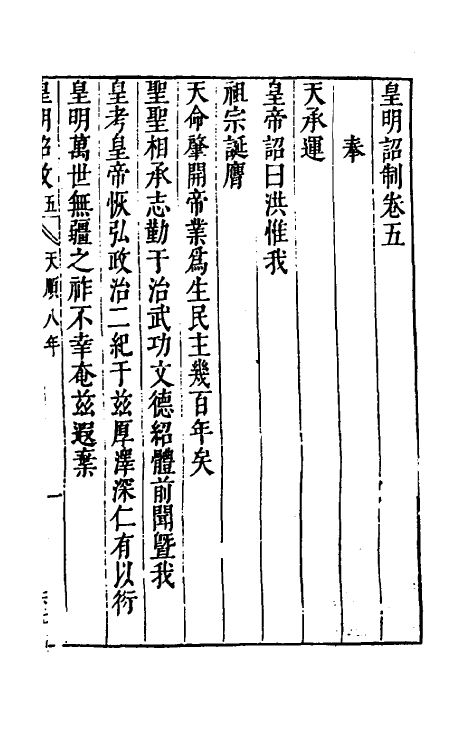 皇明詔制卷五
奉
天承運
皇帝詔曰洪惟我
祖宗誕膺
天命肇開帝業爲生民主幾百年矣
聖聖相承志勤于治武功文德紹體前聞曁我
皇考皇帝恢弘政治二紀于兹厚澤深仁有以衍
皇明萬世無疆之祚不幸奄兹遐棄
皇明詔攵五 天順八年 一